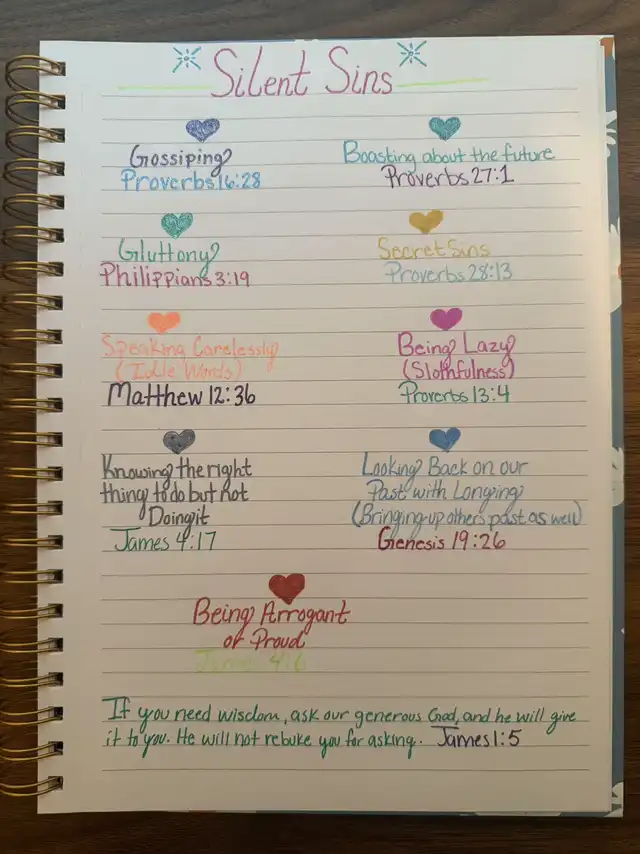 Silent Sins
Gossiping
Proverbs 16:28
Boasting about the future
Proverbs 27:1
Gluttony
Philippians 3:19
Secret Sins
Proverbs 28:13
Speaking Carelessly
(Idle Words)
Matthew 12:36
Being Lazy
(Slothfulness)
Proverbs 13:4
Knowing the right
thing to do but not
Doing it
James 4:17
Looking Back on our
Past with Longing
(Bringing up others past as well)
Genesis 19:26
Being Arrogant
or Proud
James 4:6
If you need wisdom, ask our generous God, and he will give
it to you. He will not rebuke you for asking. James 1:5